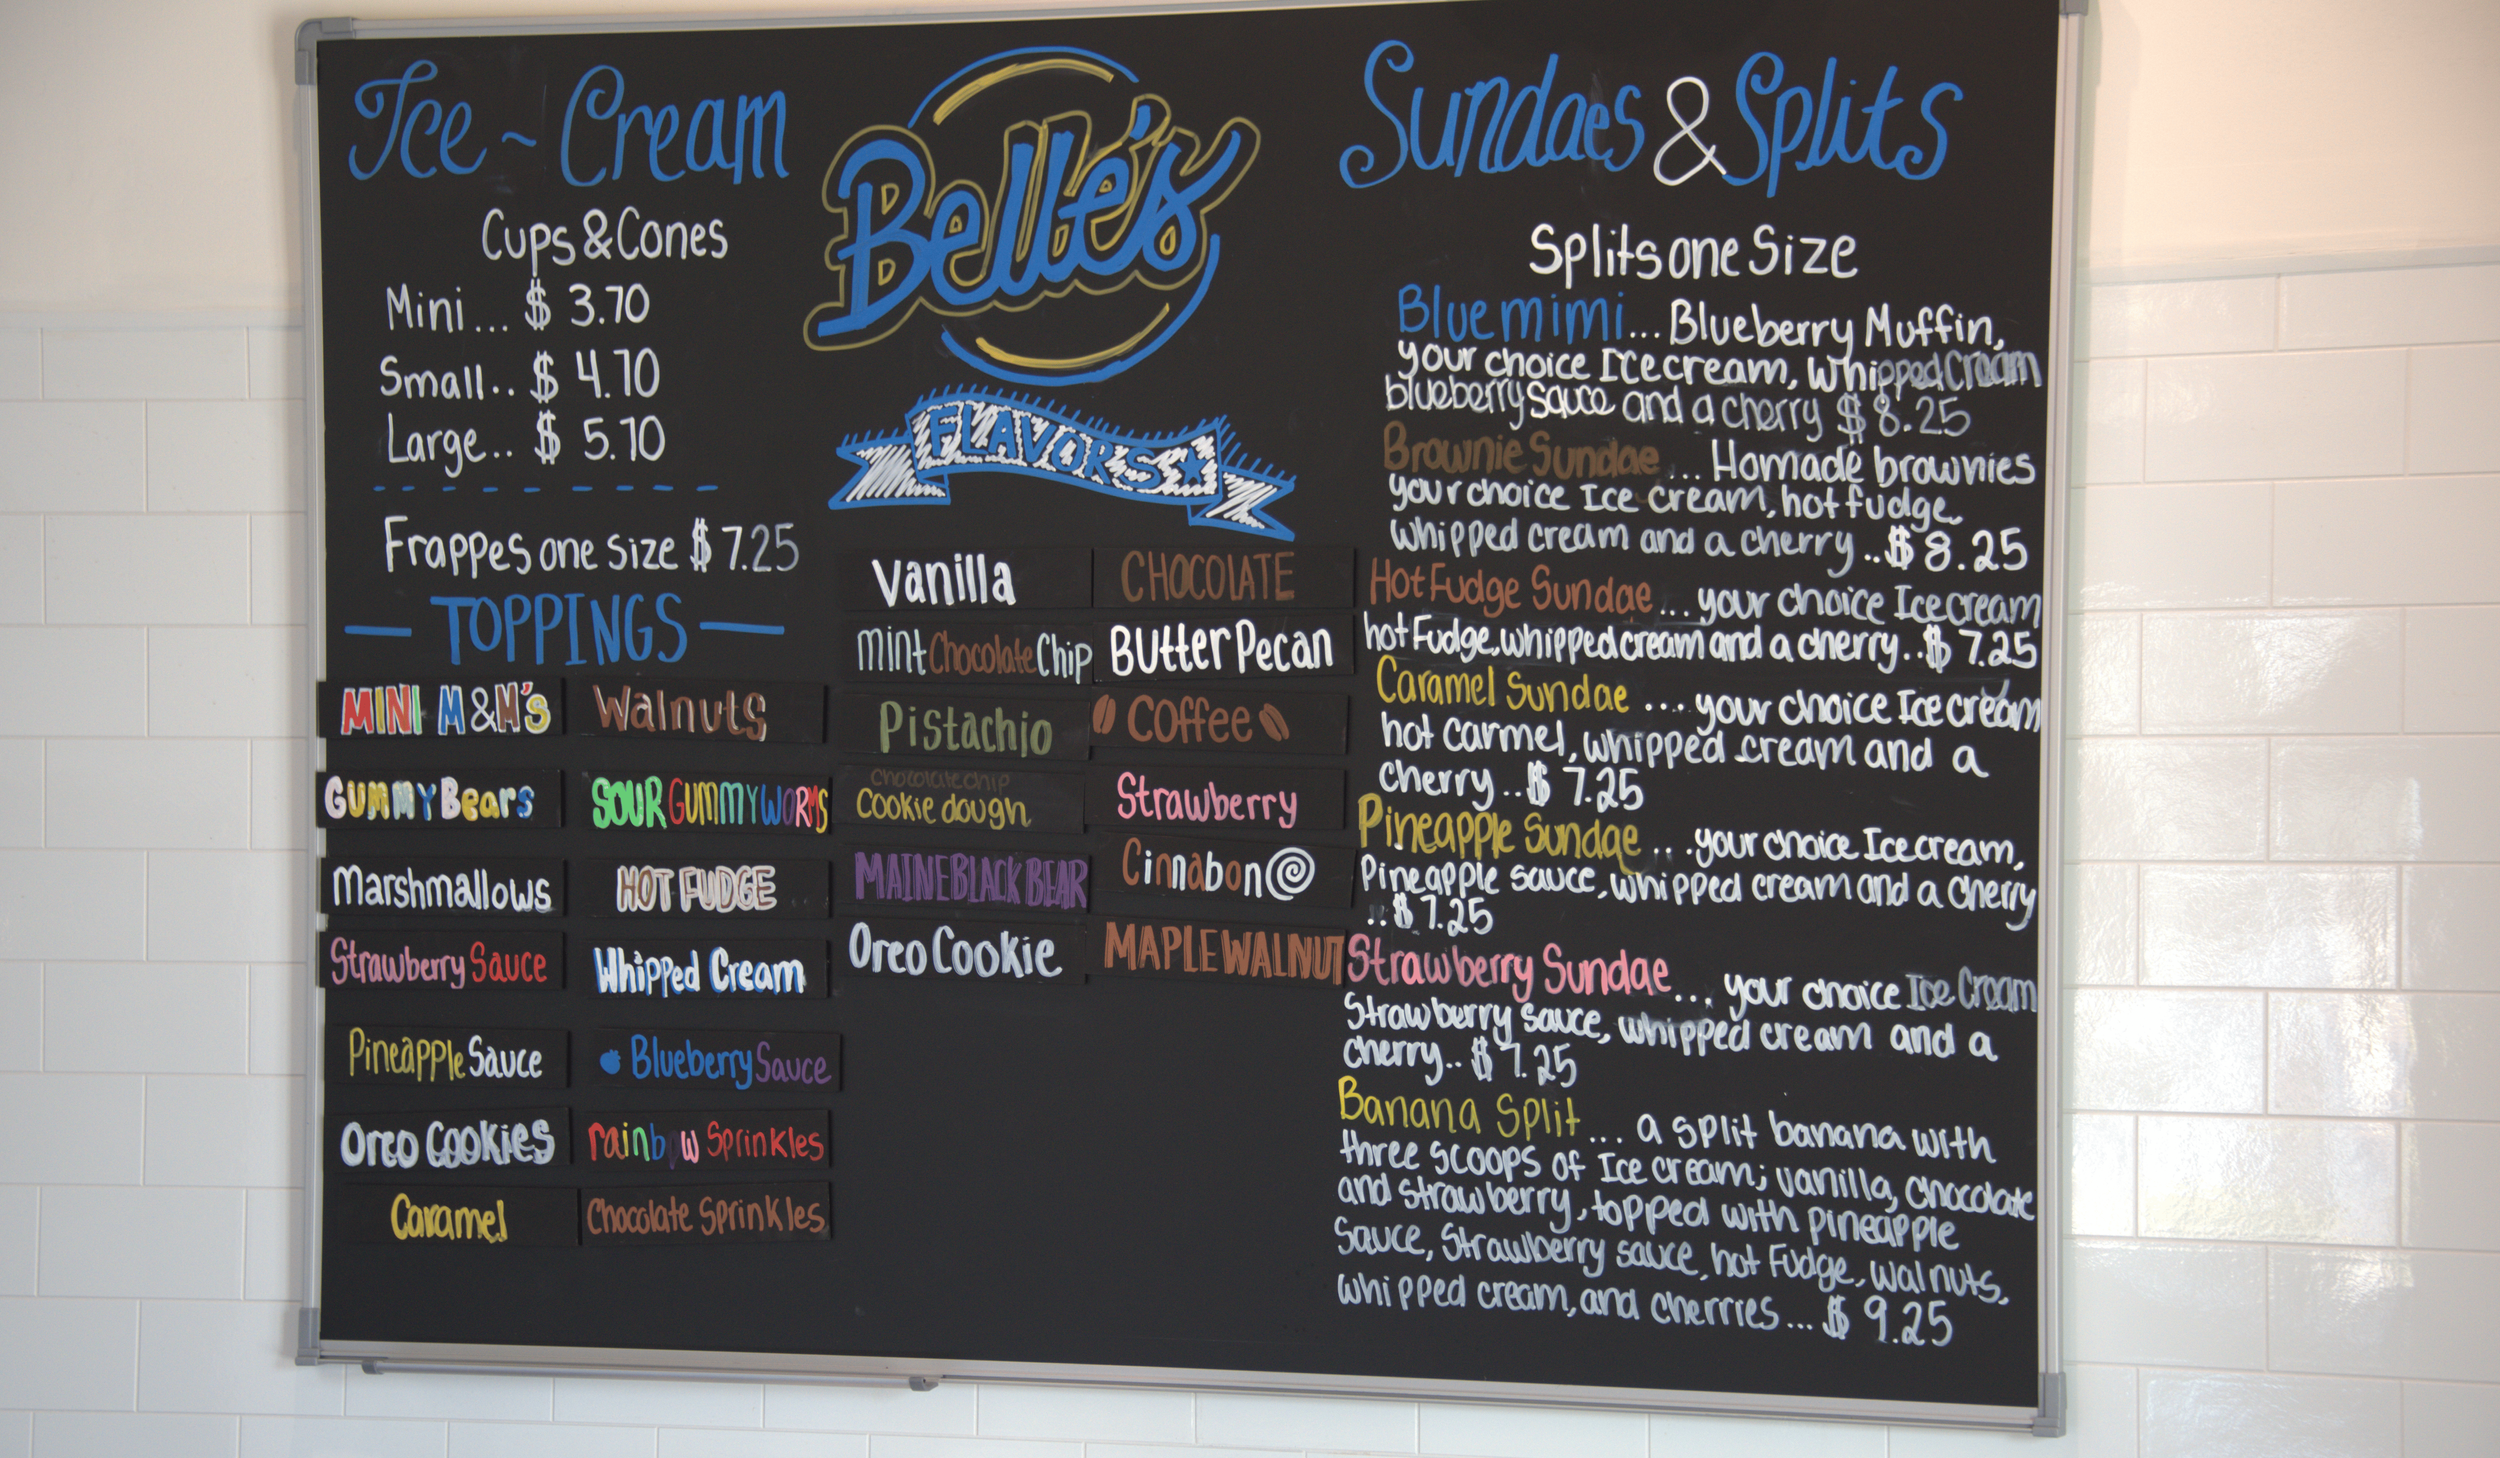 Ice ~ Cream
Cups & Cones
Mini... $ 3.70
Small.. $ 4.70
Large.. $ 5.70
Frappes one size $ 7.25
TOPPINGS
MINI M&M's
Walnuts
Gummy Bears
SOUR GUMMY WORMS
Marshmallows
HOT FUDGE
Strawberry Sauce
Whipped Cream
Pineapple Sauce
Blueberry Sauce
Oreo Cookies
rainbow Sprinkles
Caramel
Chocolate Sprinkles
Belle's
FLAVORS
Vanilla
CHOCOLATE
Mint Chocolate Chip
Butter Pecan
Pistachio
Coffee
Chocolate chip
Cookie dough
Strawberry
MAINE BLACK BEAR
Cinnabon
Oreo Cookie
MAPLE WALNUT
Sundaes & Splits
Splits one Size
Blue mimi... Blueberry Muffin,
your choice Ice cream, Whipped Cream
blueberry sauce and a cherry $ 8.25
Brownie Sundae... Homade brownies
your choice Ice cream, hot fudge,
whipped cream and a cherry..$ 8.25
Hot Fudge Sundae... your choice Ice cream
hot Fudge, whipped cream and a cherry..$ 7.25
Caramel Sundae .... your choice Ice cream
hot carmel, whipped cream and a
cherry..$ 7.25
Pineapple Sundae... your choice Ice cream,
Pineapple sauce, whipped cream and a cherry
..$ 7.25
Strawberry Sundae... your choice Ice Cream
Strawberry sauce, whipped cream and a
cherry.. $ 7.25
Banana Split... a split banana with
three scoops of Ice cream; vanilla, chocolate
and strawberry, topped with pineapple
sauce, Strawberry sauce, hot Fudge, walnuts,
whipped cream, and cherries... $ 9.25